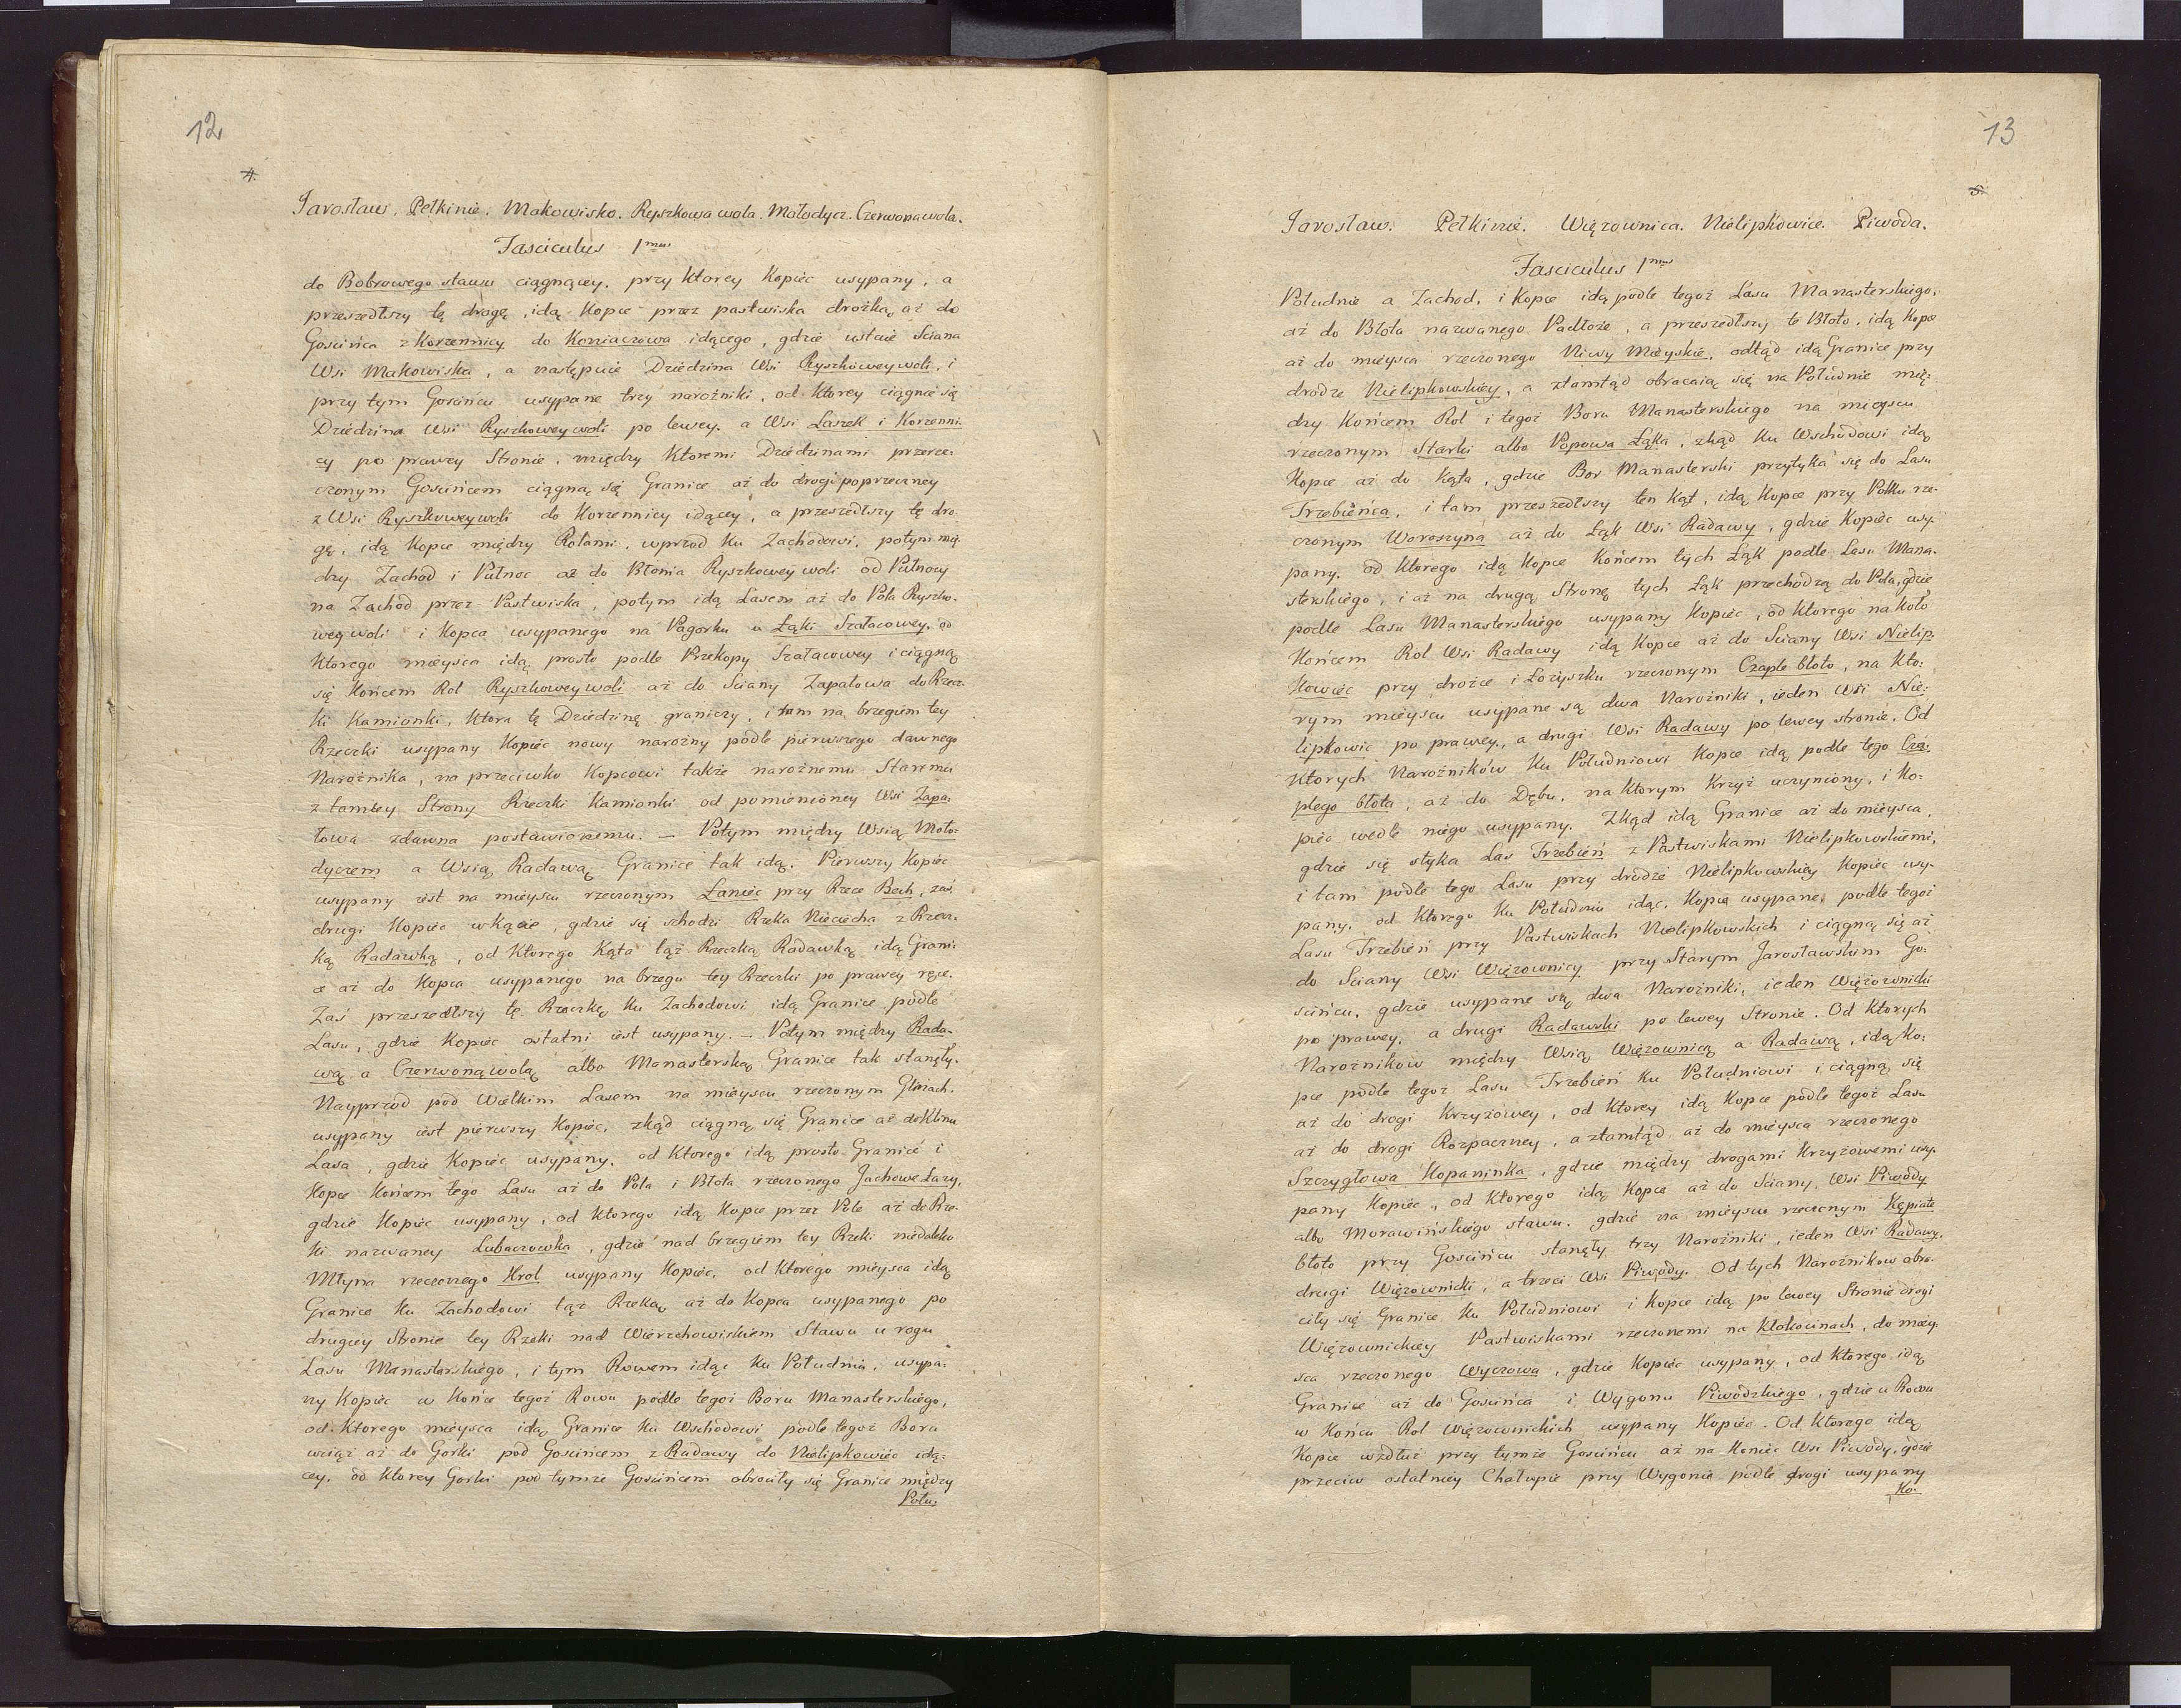 12
4.
Jarosław. Pełkinie. Makowisko. Ryszkowa wola. Mołodycz. Czerwona wola.
Fasciculus 1mus
do Bobrowego stawu ciągnącey, przy ktorey Kopiec usypany, a
przeszedłszy tę drogę, idą Kopce przez pastwiska drożką, aż do
Gościńca z Korzennicy do Koniaczowa idącego, gdzie ustaie Sciana
Wsi Makowiska, a następuie Dziedzina Wsi Ryszkoweywoli, i
przy tym Gościńcu usypane trzy narożniki, od ktorey ciągnie się
Dziedzina Wsi Ryszkoweywoli po lewey, a Wsi Laszek i Korzenni-
cy po prawey Stronie, między ktoremi Dziedzinami przerze-
czonym Gościńcem ciągną się Granice aż do drogi poprzeczney
z Wsi Ryszkoweywoli do Korzennicy idącey, a przeszedłszy tę dro-
gę, idą Kopce między Rolami, wprzod ku Zachodowi, potym mię-
dzy Zachod i Pułnoc aż do Błonia Ryszkowey woli od Pułnocy
na Zachod przez Pastwiska, potym idą Lasem aż do Pola Ryszko-
wey woli i Kopca usypanego na Pagorku u Łąki Szałacowey, od
ktorego mieysca idą prosto podle Przekopy Szałacowey i ciągną
się Końcem Rol Ryszkoweywoli aż do Sciany Zapałowa do Rzecz-
ki Kamionki, ktora tę Dziedzinę graniczy, i tam na brzegiem tey
Rzeczki usypany Kopiec nowy narożny podle pierwszego dawnego
Narożnika, na przeciwko Kopcowi także narożnemu Staremu
z tamtey Strony Rzeczki Kamionki od pomienioney Wsi Zapa-
łowa zdawna postawionemu. — Potym między Wsią Moło-
dyczem a Wsią Radawą Granice tak idą. Pierwszy Kopiec
usypany iest na mieyscu rzeczonym Łaniec przy Rzece Bech, zaś
drugi Kopiec wkącie, gdzie się schodzi Rzeka Nieciecha z Rzecz-
ką Radawką, od ktorego Kąta tąż Rzeczką Radawką idą Grani-
ce aż do Kopca usypanego na brzegu tey Rzeczki po prawey ręce.
Zaś przeszedłszy tę Rzeczkę ku Zachodowi idą Granice podle
Lasu, gdzie Kopiec ostatni iest usypany. — Potym między Rada-
wą a Czerwonąwolą albo Manasterską Granice tak stanęły.
Nayprzod pod Wielkim Lasem na mieyscu rzeczonym Glinach,
usypany iest pierwszy Kopiec, zkąd ciągną się Granice aż do Klonu
Lasa, gdzie Kopiec usypany, od ktorego idą prosto Granice i
Kopce Końcem tego Lasu aż do Pola i Błota rzeczonego Jachowe Łazy,
gdzie Kopiec usypany, od ktorego idą Kopce przez Pole aż do Rze-
ki nazwaney Lubaczowka, gdzie nad brzegiem tey Rzeki niedaleko
Młyna rzeczonego Krol usypany Kopiec, od ktorego mieysca idą
Granice ku Zachodowi tąż Rzeką aż do Kopca usypanego po
drugiey Stronie tey Rzeki nad Wierzchowiskiem Stawu u rogu
Lasu Manasterskiego, i tym Rowem idąc ku Południu, usypa-
ny Kopiec w Końcu tegoż Rowu podle tegoż Boru Manasterskiego,
od ktorego mieysca idą Granice ku Wschodowi podle tegoż Boru
wciąż aż do Gorki pod Gościńcem z Radawy do Nielipkowiec idą-
cey, od ktorey Gorki pod tymże Gościńcem obrociły się Granice między
Połu-
13
5.
Jarosław. Pełkinie. Więzownica. Nielipkowice. Piwoda.
Fasciculus 1mus
Południe a Zachod, i Kopce idą podle tegoż Lasu Manasterskiego,
aż do Błota nazwanego Padłoże, a przeszedłszy te Błoto, idą Kopce
aż do mieysca rzeczonego Niwy Mieyskie, odtąd idą Granice przy
drodze Nielipkowskiey, a ztamtąd obracaią się na Południe mię-
dzy Końcem Rol i tegoż Boru Manasterskiego na mieyscu
rzeczonym Starki albo Popowa Łąka, zkąd ku Wschodowi idą
Kopce aż do Kąta, gdzie Bor Manasterski przytyka się do Lasu
Trzebieńca, i tam przeszedłszy ten Kąt, idą Kopce przy Polku rze-
czonym Woroszyna aż do Łąk Wsi Radawy, gdzie Kopiec usy-
pany, od ktorego idą Kopce Końcem tych Łąk podle Lasu Mana-
sterskiego, i aż na drugą Stronę tych Łąk przechodzą do Pola, gdzie
podle Lasu Manasterskiego usypany Kopiec, od ktorego na koło
Końcem Rol Wsi Radawy idą Kopce aż do Sciany Wsi Nielip-
kowiec przy drożce i Łożysku rzeczonym Czaple błoto, na kto-
rym mieyscu usypane są dwa Narożniki, ieden Wsi Nie-
lipkowic po prawey, a drugi Wsi Radawy po lewey stronie. Od
ktorych Narożników ku Południowi Kopce idą podle tego Cza-
plego błota, aż do Dębu, na ktorym Krzyż uczyniony, i Ko-
piec wedle niego usypany. Zkąd idą Granice aż do mieysca,
gdzie się styka Las Trzebień z Pastwiskami Nielipkowskiemi,
i tam podle tego Lasu przy drodze Nielipkowskiey Kopiec usy-
pany, od ktorego ku Południu idąc, Kopce usypane, podle tegoż
Lasu Trzebień przy Pastwiskach Nielipkowskich i ciągną się aż
do Sciany Wsi Więzownicy przy Starym Jarosławskim Go-
ścińcu, gdzie usypane są dwa Narożniki, ieden Więzownicki
po prawey, a drugi Radawski po lewey Stronie. Od ktorych
Narożnikow między Wsią Więzownicą a Radawą, idą Ko-
pce podle tegoż Lasu Trzebień ku Południowi i ciągną się
aż do drogi Krzyżowey, od ktorey idą Kopce podle tegoż Lasu
aż do drogi Rozpaczney, a ztamtąd aż do mieysca rzeczonego
Szczygłowa Kopaninka, gdzie między drogami Krzyżowemi usy-
pany Kopiec, od ktorego idą Kopce aż do Sciany Wsi Piwody
albo Morawińskiego stawu, gdzie na mieyscu rzeczonym Kępiate
błoto przy Gościńcu stanęły trzy Narożniki, ieden Wsi Radawy,
drugi Więzownicki, a trzeci Wsi Piwody. Od tych Narożnikow obro-
ciły się Granice ku Południowi i Kopce idą po lewey Stronie drogi
Więzownickiey Pastwiskami rzeczonemi na Kłokocinach, do miey-
sca rzeczonego Wyczowa, gdzie Kopiec usypany, od ktorego idą
Granice aż do Gościńca i Wygonu Piwodzkiego, gdzie u Rowu
w Końcu Rol Więzownickich usypany Kopiec. Od ktorego idą
Kopce wzdłuż przy tymże Gościńcu aż na Koniec Wsi Piwody, gdzie
przeciw ostatniey Chałupie przy Wygonie podle drogi usypany
Ko-